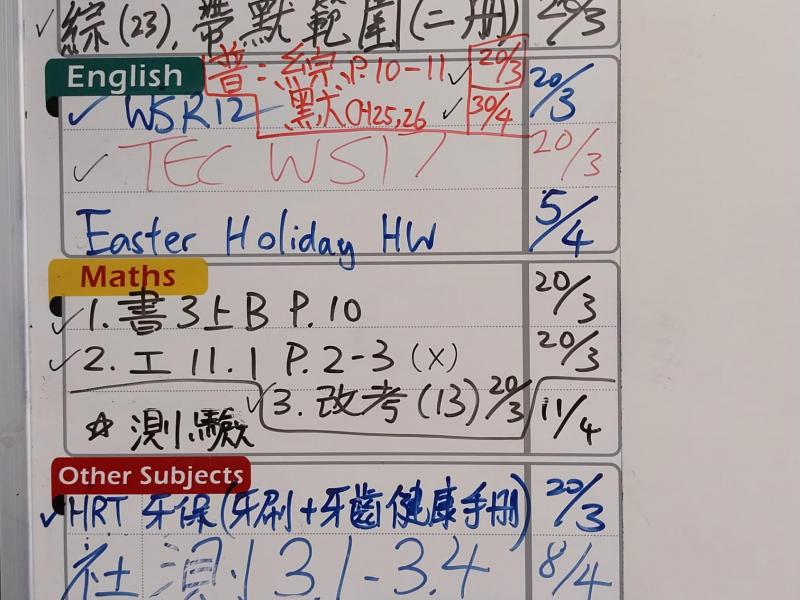 ✓ 綜(23), 帶默範圍(二冊) 20/3
English
普:綜P.10-11 ✓ 20/3
✓ WSR12 20/3
默CH25,26 ✓ 30/4
✓ TEC WS17 20/3
Easter Holiday HW 5/4
Maths
✓ 1. 書3上B P.10 20/3
✓ 2. 工11.1 P.2-3 (X) 20/3
✓ 3. 改考(13) 20/3
☆ 測驗 11/4
Other Subjects
✓ HRT 牙保(牙刷+牙齒健康手冊) 20/3
社 測 3.1-3.4 8/4